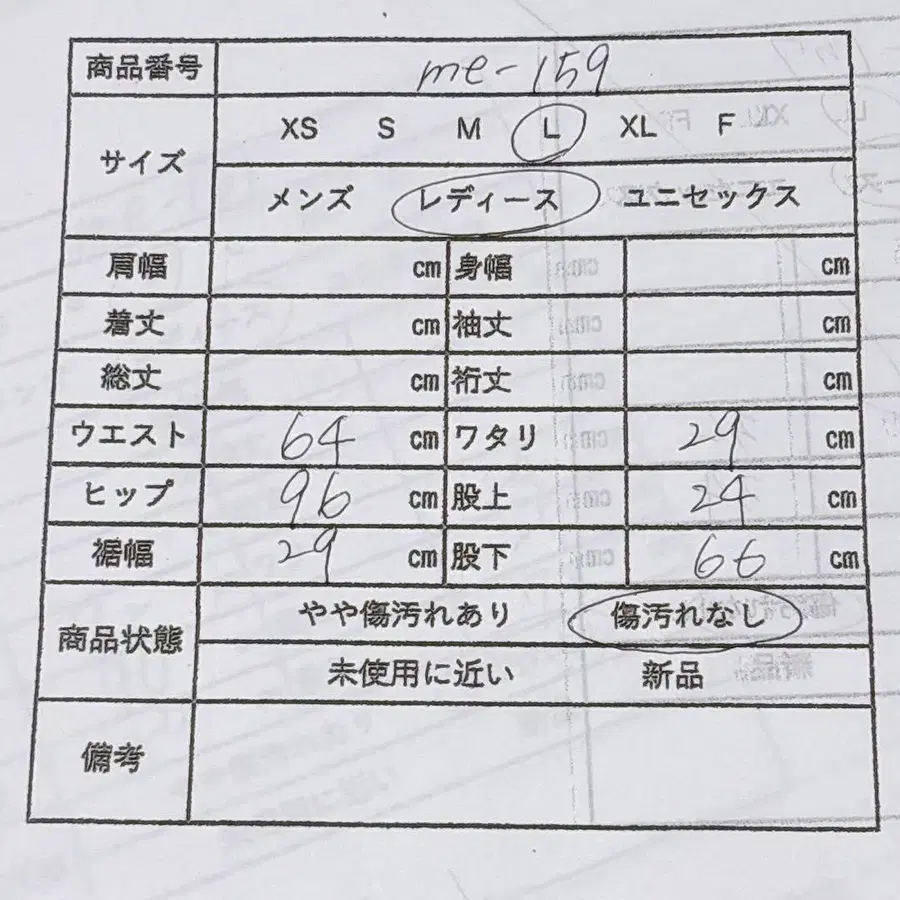 商品番号 me-159
サイズ XS S M L XL F
メンズ レディース ユニセックス
肩幅 cm 身幅 cm
着丈 cm 袖丈 cm
総丈 cm 裄丈 cm
ウエスト 64 cm ワタリ 29 cm
ヒップ 96 cm 股上 24 cm
裾幅 29 cm 股下 66 cm
商品状態 やや傷汚れあり 傷汚れなし
未使用に近い 新品
備考